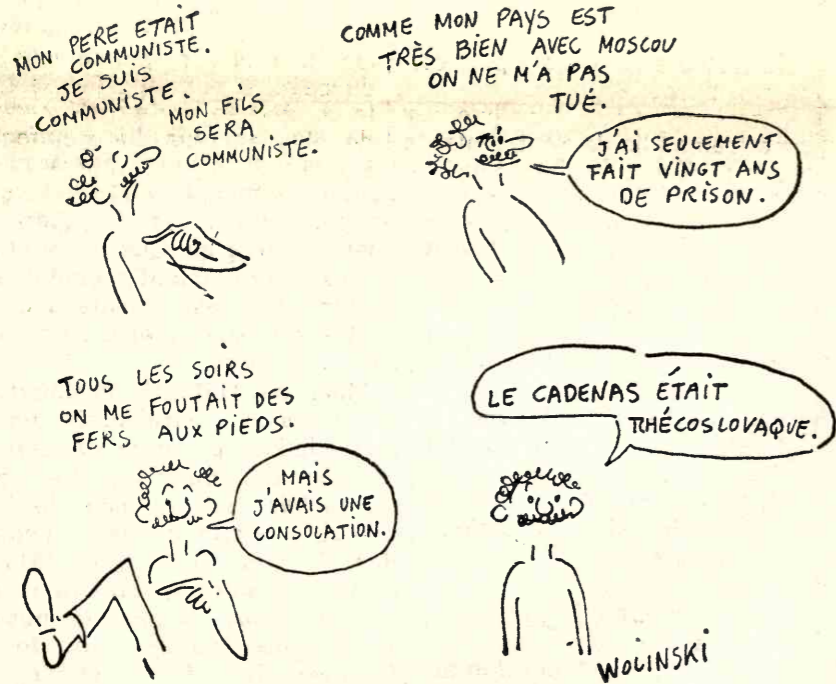 MON PERE ETAIT
COMMUNISTE.
JE SUIS
COMMUNISTE.
MON FILS
SERA
COMMUNISTE.
COMME MON PAYS EST
TRÈS BIEN AVEC MOSCOU
ON NE M'A PAS
TUÉ.
J'AI SEULEMENT
FAIT VINGT ANS
DE PRISON.
TOUS LES SOIRS
ON ME FOUTAIT DES
FERS AUX PIEDS.
MAIS
J'AVAIS UNE
CONSOLATION.
LE CADENAS ÉTAIT
TCHÉCOSLOVAQUE.
WOLINSKI